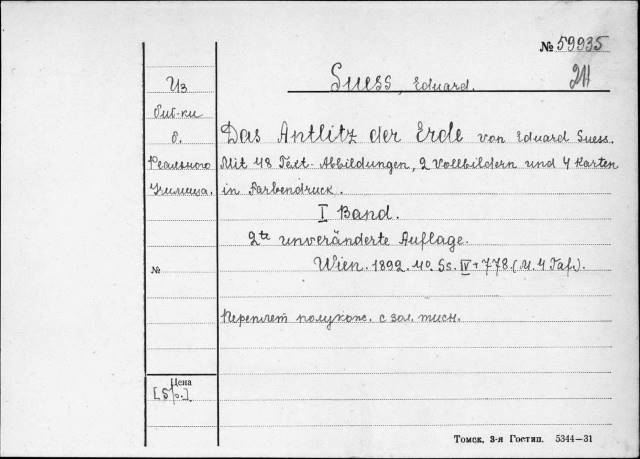 № 59935
2H
Suess, Eduard.
Из
биб-ки
б.
Реального
Училища.
Das Antlitz der Erde von Eduard Suess.
Mit 48 Text-Abbildungen, 2 Vollbildern und 4 Karten
in Farbendruck.
I Band.
2te unveränderte Auflage.
Wien. 1892. 4o. Ss. IV+778. (M. 4 Taf.).
№
Переплет полукож. с зол. тисн.
Цена
[5р.]
Томск, 3-я Гостип. 5344—31